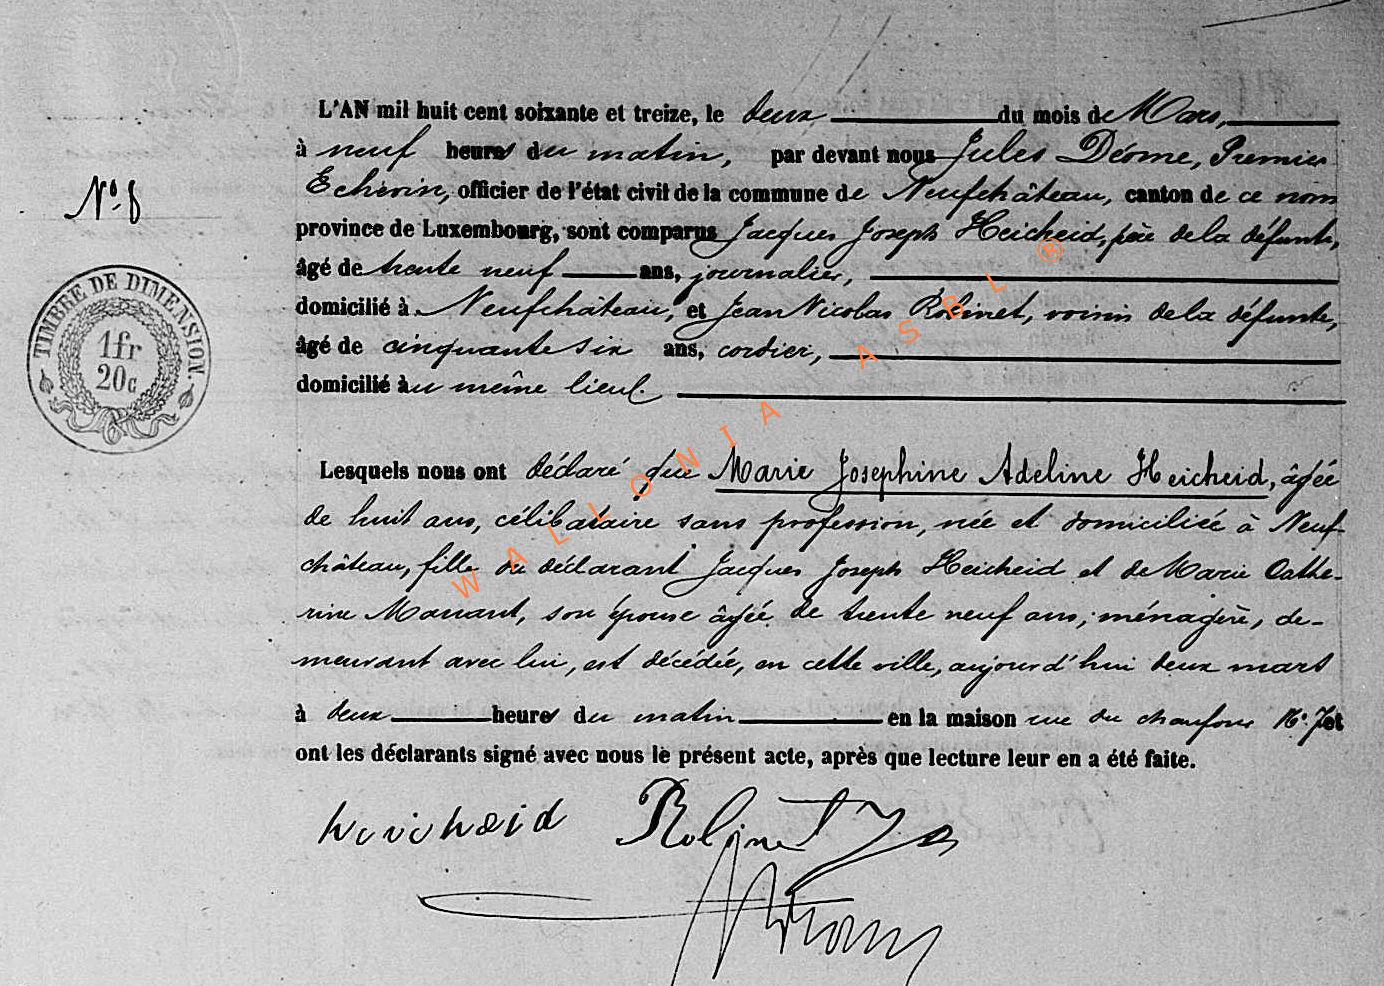 L'AN mil huit cent soixante et treize, le deux du mois de Mars,
à neuf heures du matin, par devant nous Jules Déome, Premier
Echevin, officier de l'état civil de la commune de Neufchâteau, canton de ce nom
province de Luxembourg, sont comparus Jacques Joseph Heicheid, père de la défunte,
N° 8
âgé de trente neuf ans, journalier,
domicilié à Neufchâteau, et Jean Nicolas Robinet, voisin de la défunte,
âgé de cinquante six ans, cordier,
domicilié au même lieu.
TIMBRE DE DIMENSION.
1fr
20c
Lesquels nous ont déclaré que Marie Josephine Adeline Heicheid, âgée
de huit ans, célibataire sans profession, née et domiciliée à Neuf-
château, fille du déclarant Jacques Joseph Heicheid et de Marie Cathe-
rine Manant, son épouse âgée de trente neuf ans, ménagère, de-
meurant avec lui, est décédée, en cette ville, aujourd'hui deux mars
à deux heures du matin en la maison rue du chaufour N° 7 et
ont les déclarants signé avec nous le présent acte, après que lecture leur en a été faite.
heicheid Robinet
WALLONIA ASBL ®